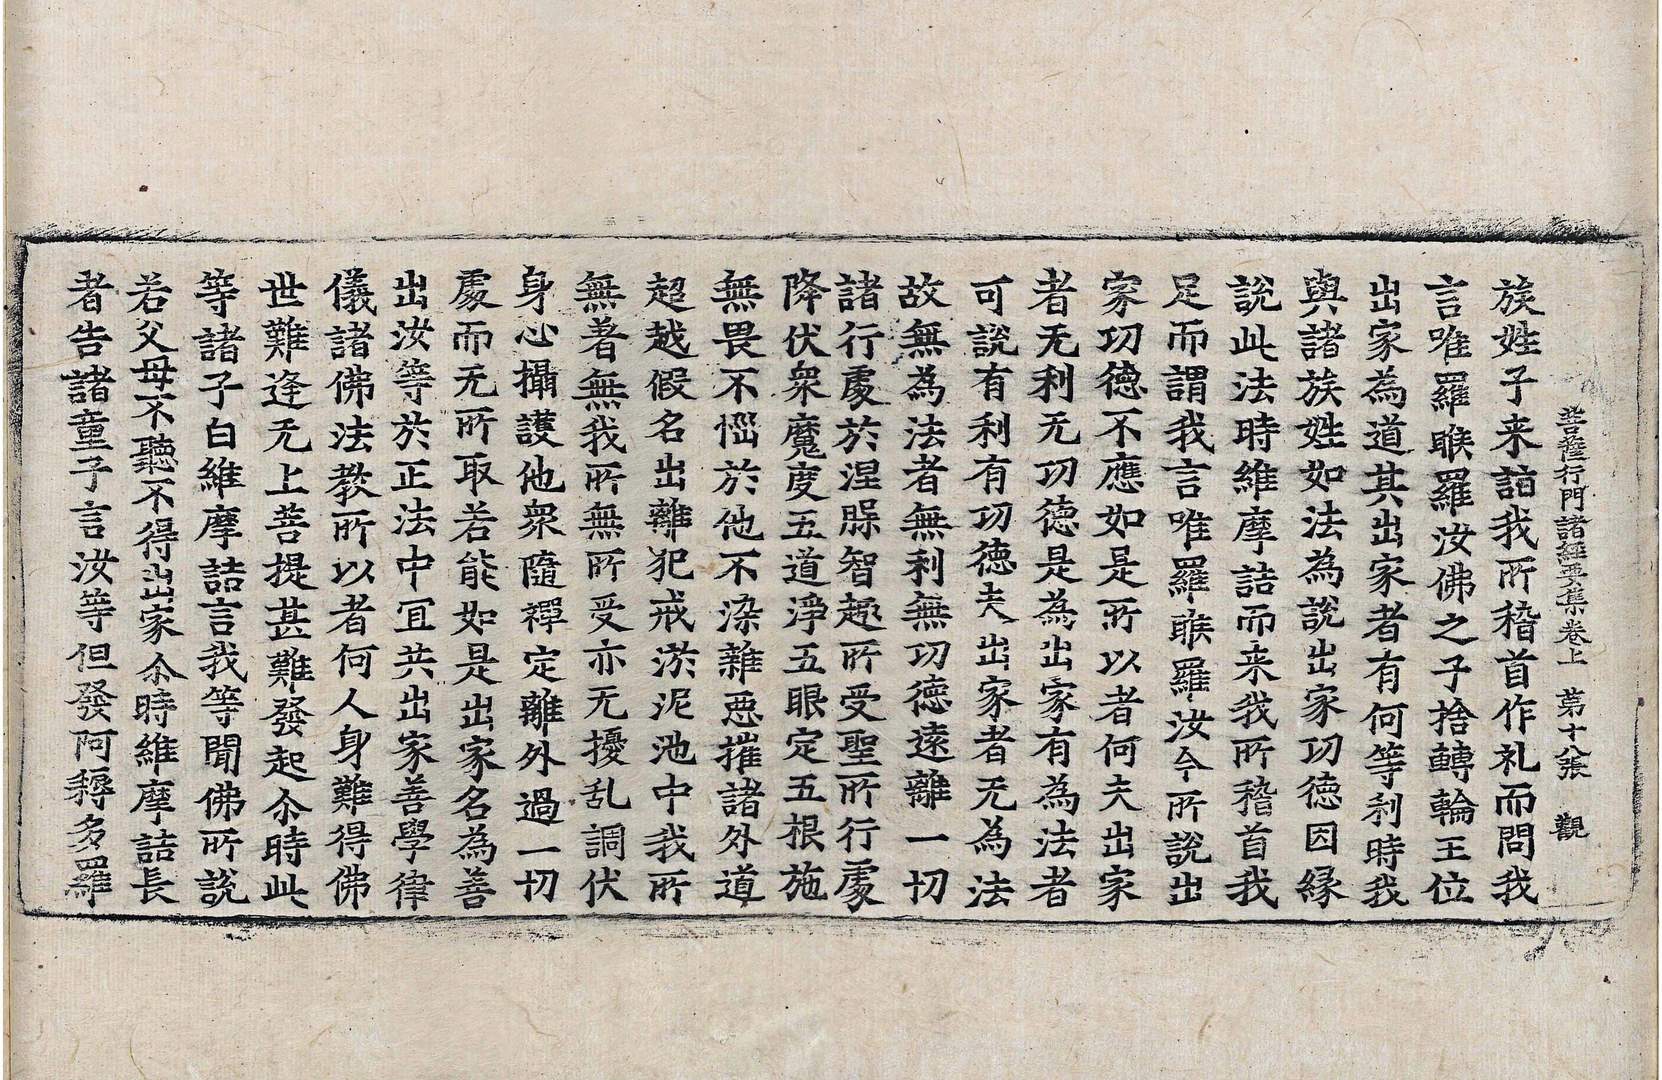 菩薩行門諸經要集卷上 苐十八張 觀
族姓子来詣我所稽首作礼而問我
言唯羅睺羅汝佛之子捨轉輪王位
出家為道其出家者有何等利時我
與諸族姓如法為說出家功徳因緣
說此法時維摩詰而来我所稽首我
足而謂我言唯羅睺羅汝今所說出
家功德不應如是所以者何夫出家
者无利无功徳是為出家有為法者
可說有利有功徳夫出家者无為法
故無為法者無利無功徳遠離一切
諸行處於涅槃智趣所受聖所行處
降伏衆魔度五道淨五眼定五根施
無畏不惱於他不染雜惡摧諸外道
超越假名出離犯戒淤泥池中我所
無著無我所無所受亦无擾乱調伏
身心攝護他衆隨禪定離外過一切
處而无所取若能如是出家名為善
出汝等於正法中冝共出家善學律
儀諸佛法教所以者何人身難得佛
世難逢无上菩提甚難發起尒時此
等諸子白維摩詰言我等聞佛所說
若父母不聽不得出家尒時維摩詰長
者告諸童子言汝等但發阿耨多羅